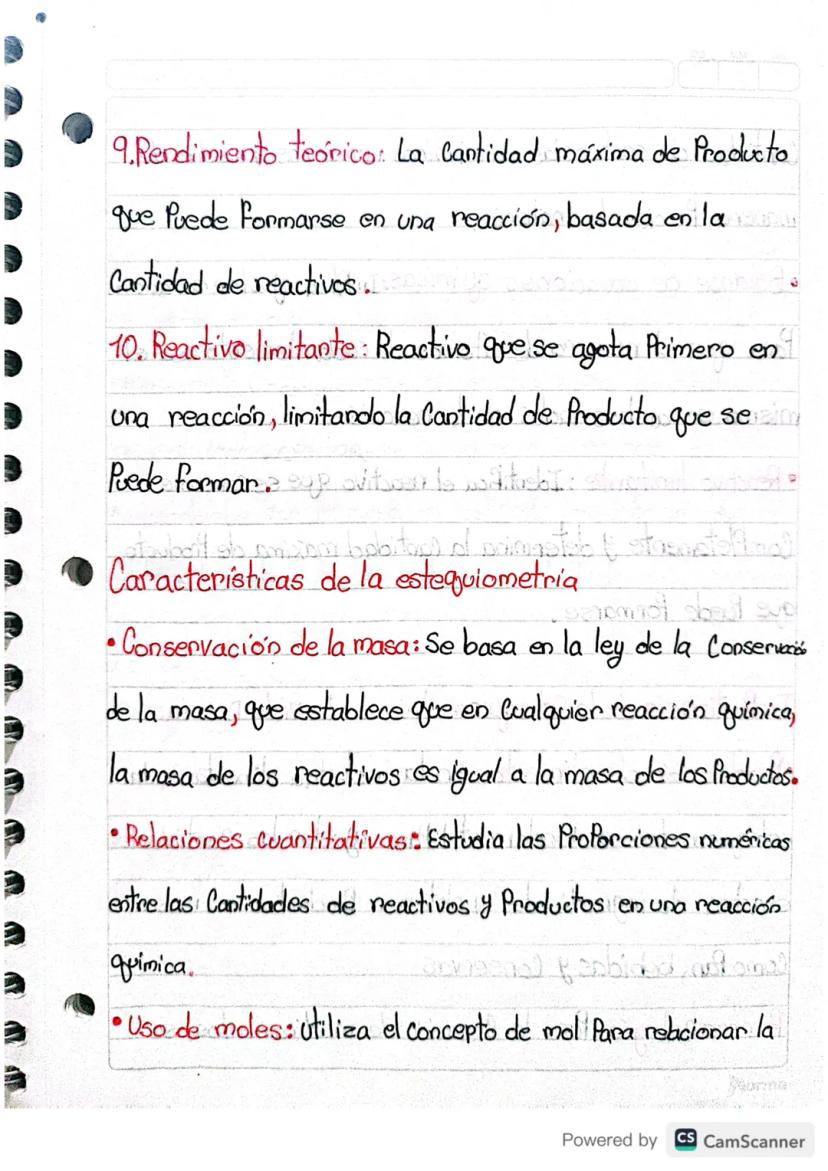 9. Rendimiento teórico: La Cantidad máxima de Producto
que Puede Formarse en una reacción, basada en la
Cantidad de reactivos.
10. Reactivo limitante: Reactivo que se agota Primero en
una reacción, limitando la Cantidad de Producto que se
Puede formar.
Características de la estequiometría
• Conservación de la masa: Se basa en la ley de la Conservación
de la masa, que establece que en Cualquier reacción química,
la masa de los reactivos es igual a la masa de los Productos.
• Relaciones cuantitativas: Estudia las Proporciones numéricas
entre las Cantidades de reactivos y Productos en una reacción
química.
• Uso de moles: Utiliza el concepto de mol Para relacionar la
Powered by CS CamScanner